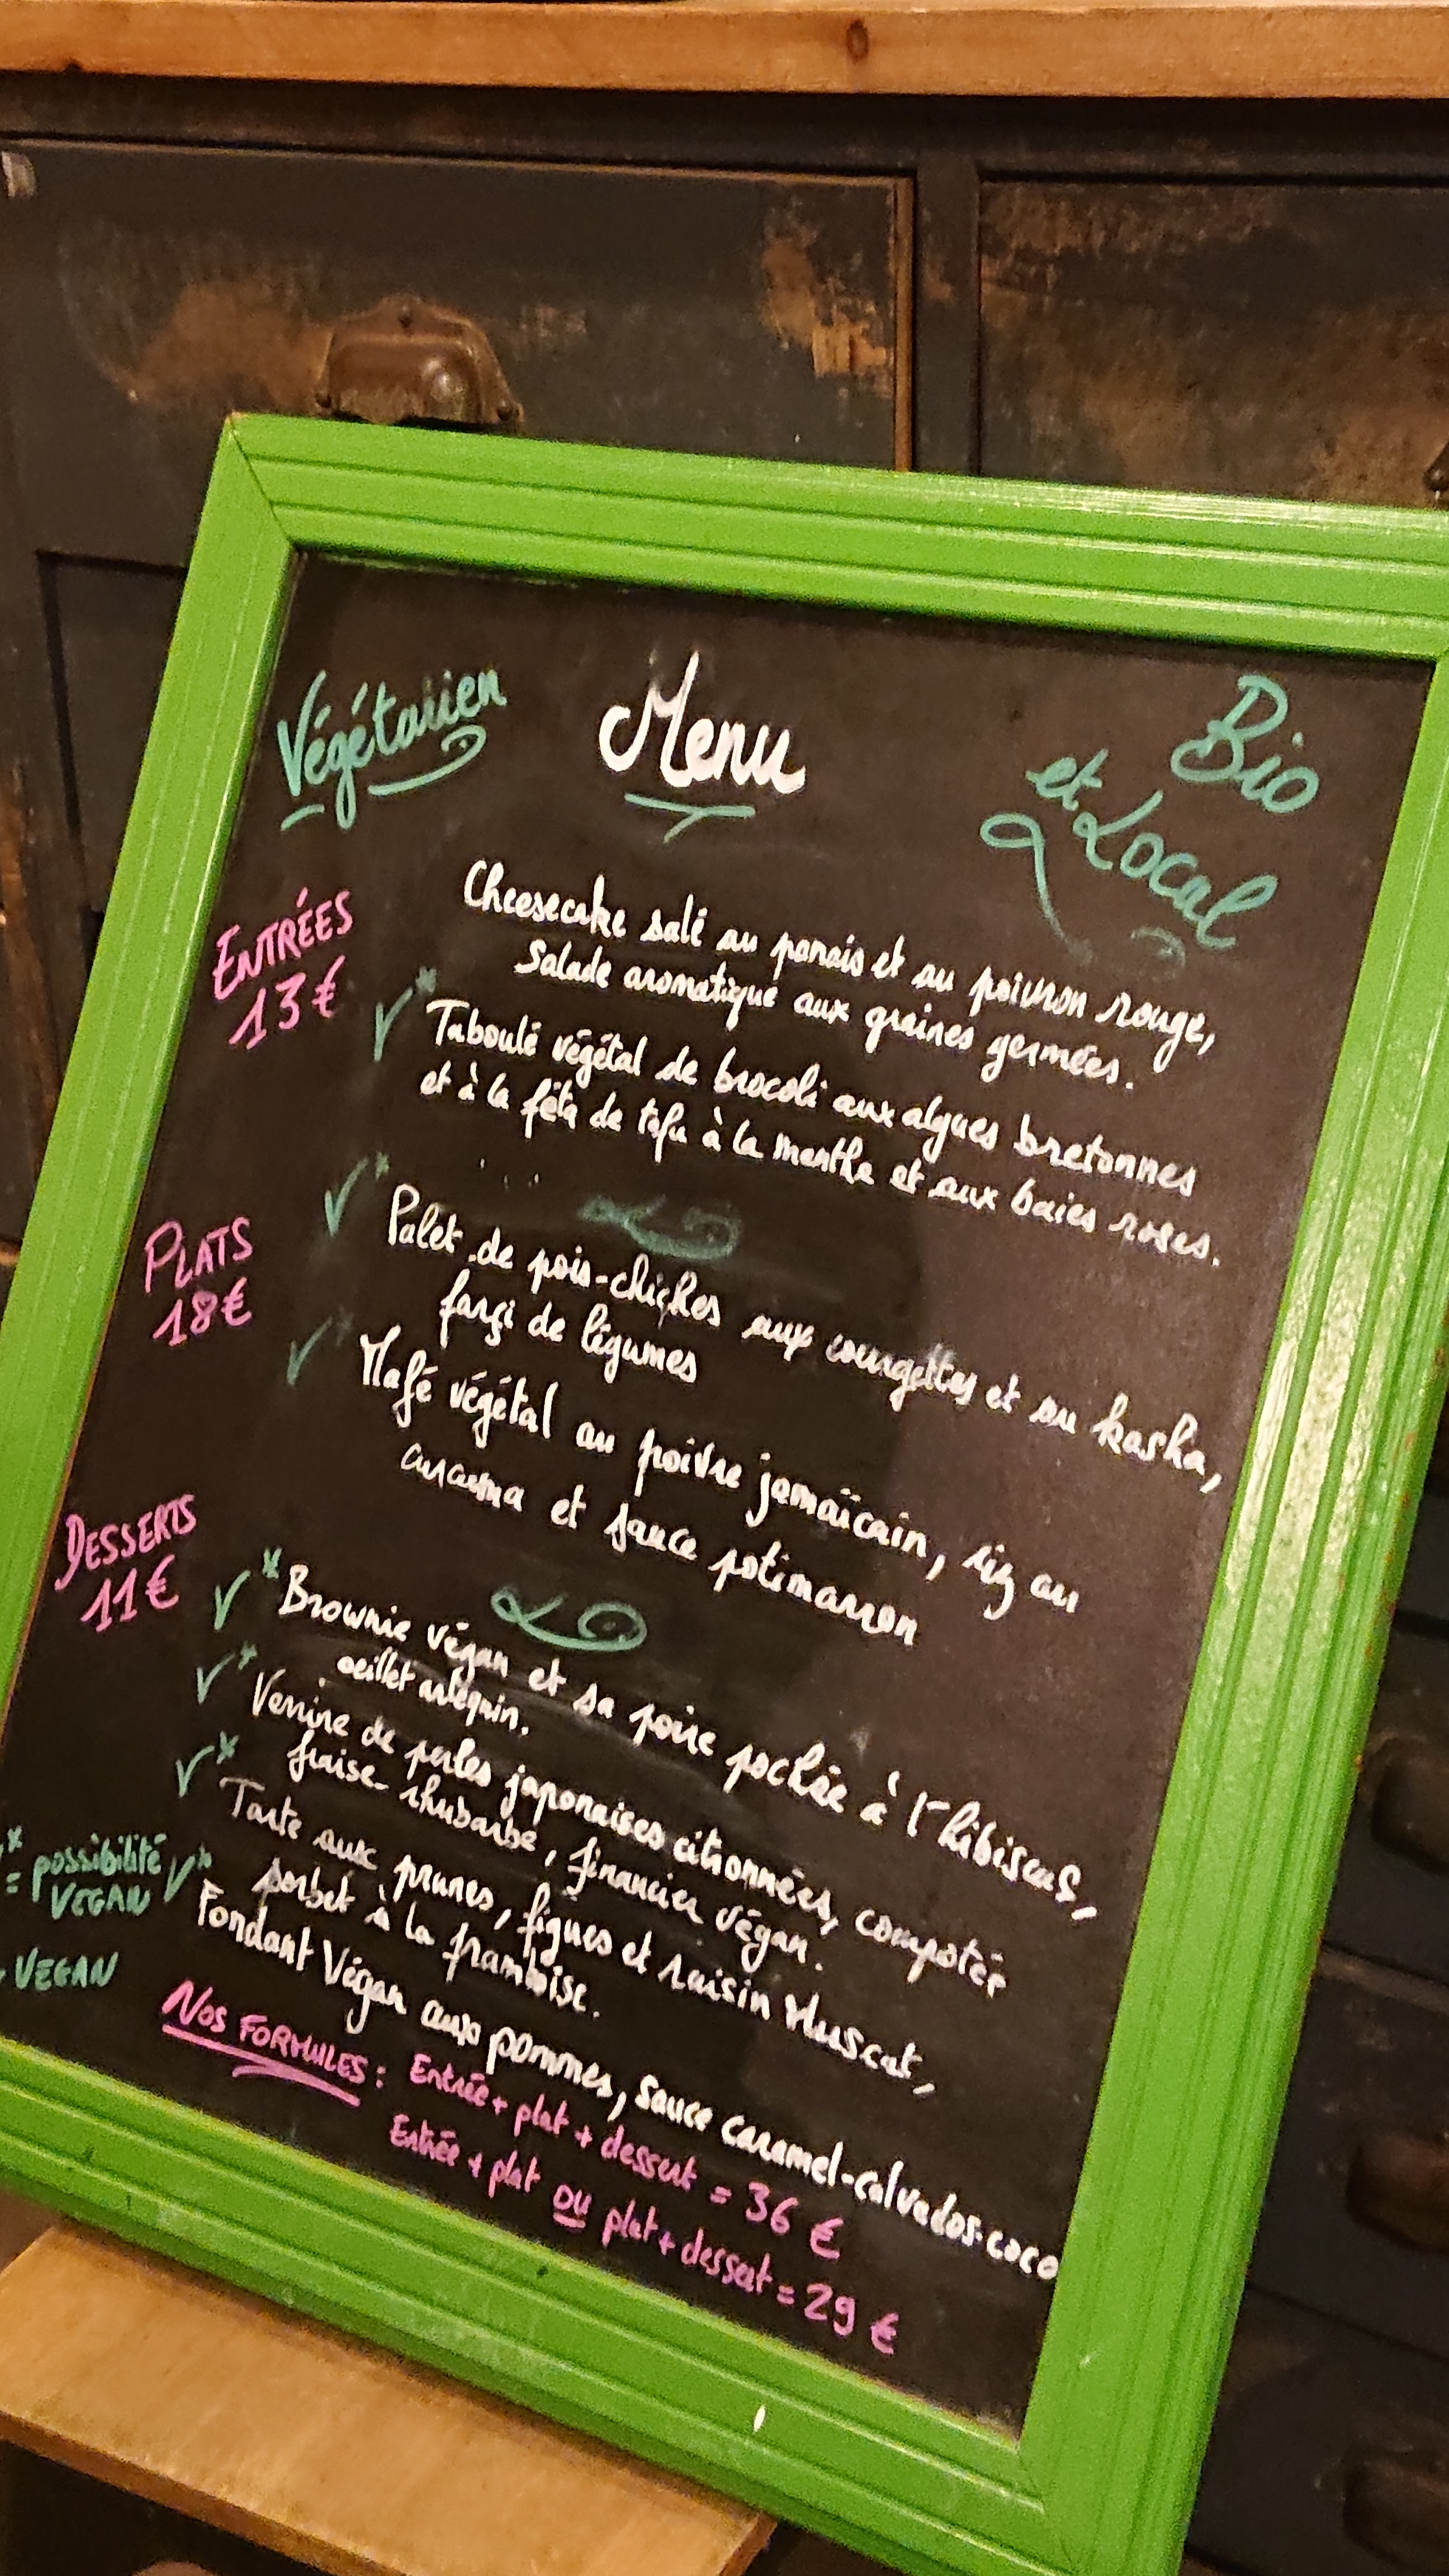 Végétarien
Menu
Bio
et Local
ENTRÉES
13€
Cheesecake salé au panais et au poivron rouge,
Salade aromatique aux graines germées.
V* Taboulé végétal de brocoli aux algues bretonnes
et à la fêta de tofu à la menthe et aux baies roses.
PLATS
18€
V* Palet de pois-chiches aux courgettes et au kasha,
farçi de légumes
V* Mafé végétal au poivre jamaïcain, riz au
curcuma et sauce potimarron
DESSERTS
11€
V* Brownie végan et sa poire pochée à l'hibiscus,
oeillet arlequin.
V* Verrine de perles japonaises citronnées, compotée
fraise-rhubarbe, financier végan.
V* Tarte aux prunes, figues et raisin Muscat,
sorbet à la framboise.
V* Fondant Végan aux pommes, sauce caramel-calvados-coco
* = possibilité
VEGAN
VEGAN
NOS FORMULES : Entrée + plat + dessert = 36 €
Entrée + plat ou plat + dessert = 29 €